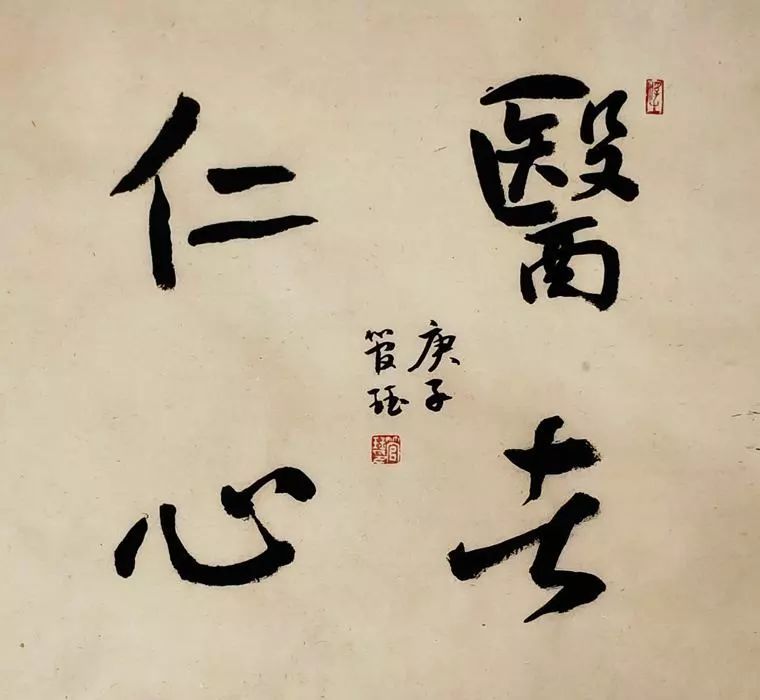 醫者
仁心
庚子
管珏